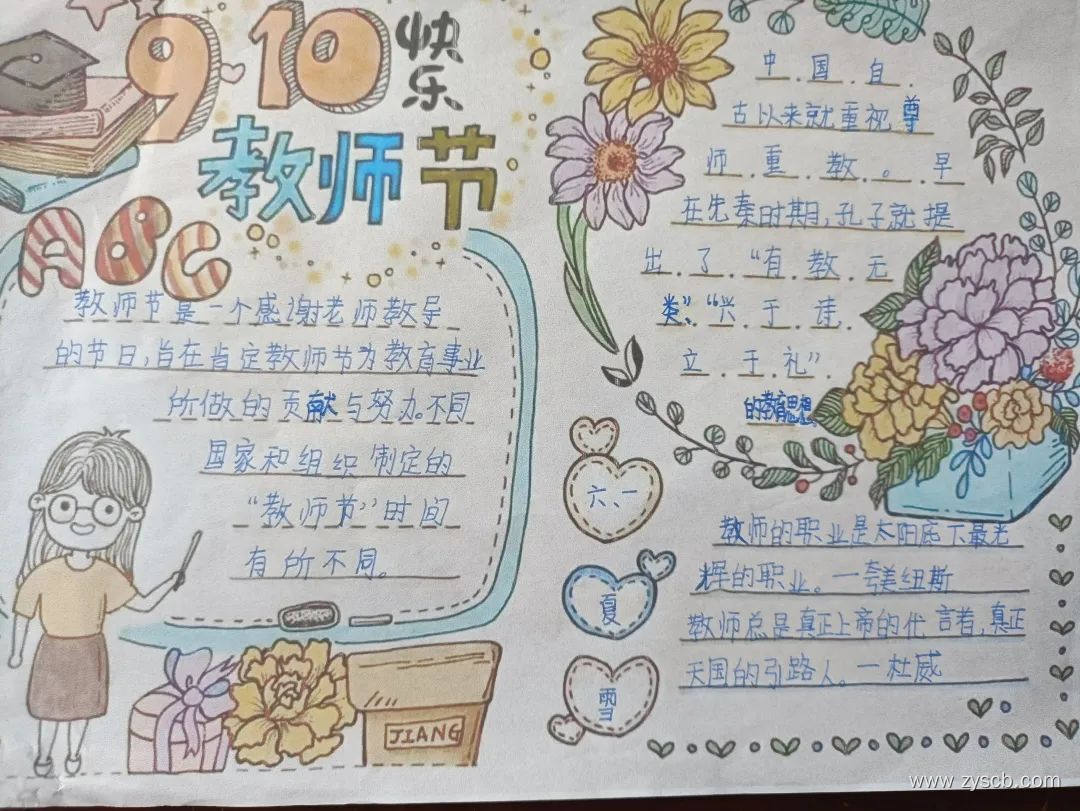 9.10 快乐
教师节
ABC
教师节是一个感谢老师教导
的节日，旨在肯定教师节为教育事业
所做的贡献与努力。不同
国家和组织制定的
“教师节”时间
有所不同。
JIANG
中国自
古以来就重视尊
师重教。早
在先秦时期，孔子就提
出了“有教无
类”、“兴于诗
立于礼”
的教育思想
六一
夏
雪
教师的职业是太阳底下最光
辉的职业。一夸美纽斯
教师总是真正上帝的代言者，真正
天国的引路人。一杜威
www.zyscb.com